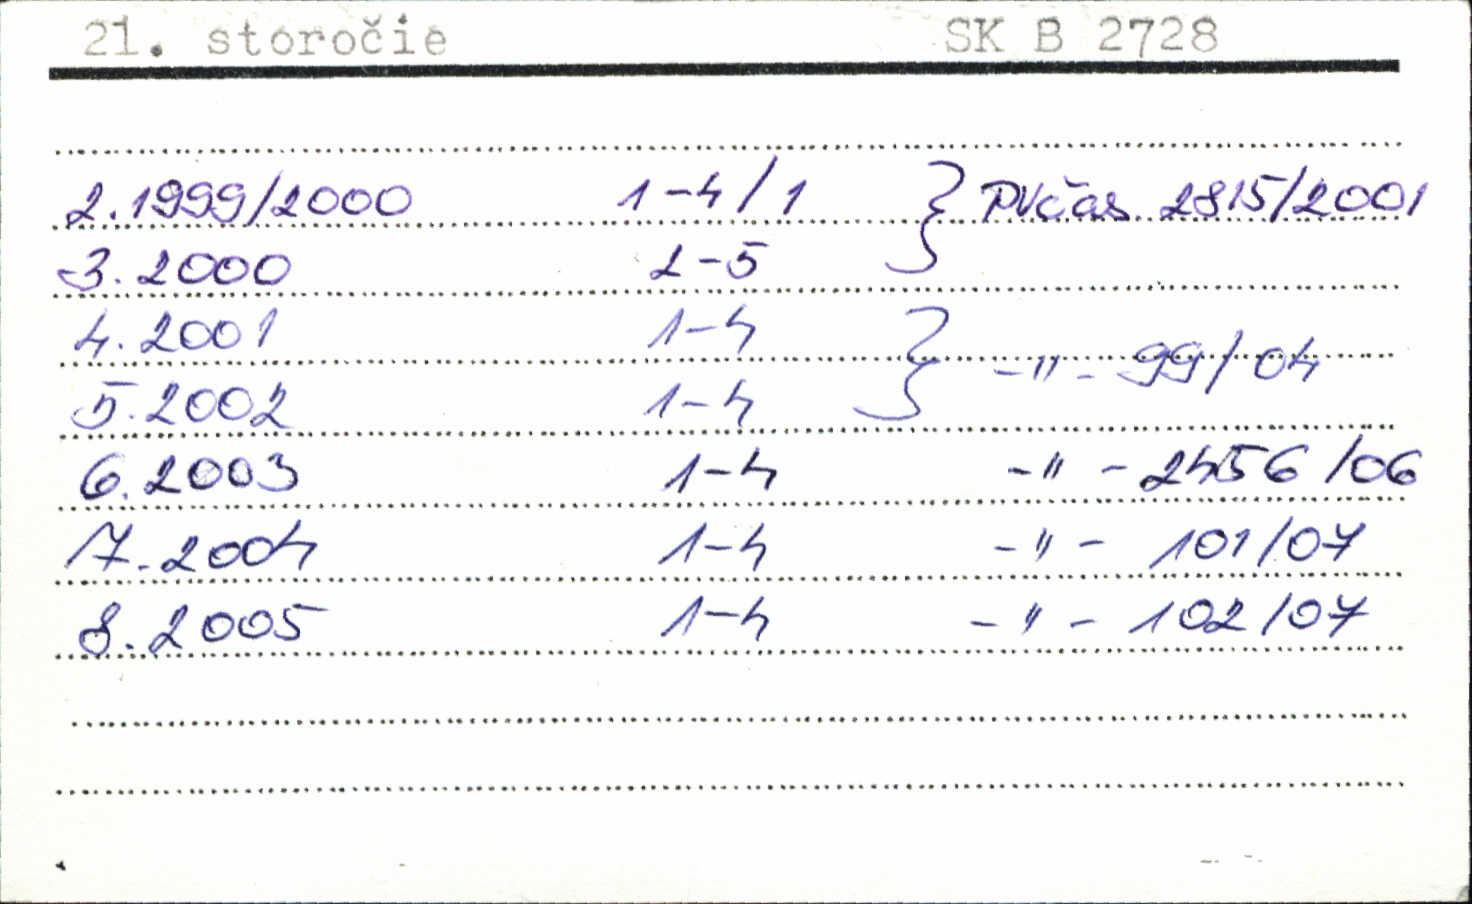 21. storočie SK B 2728
2.1999/2000 1-4/1 } PVčas 2815/2001
3.2000 2-5
4.2001 1-4 } -"- 99/04
5.2002 1-4
6.2003 1-4 -"- 2456/06
7.2004 1-4 -"- 101/07
8.2005 1-4 -"- 102/07